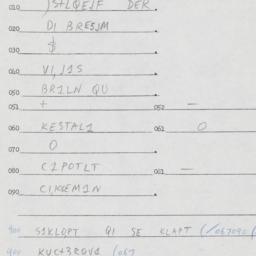 010 JS+LQEJF DER
020 DI BRESJM
030 $
040 VI,J1S
050 BR1LN QU
051 + 052 —
060 KESTAL1 061 O
070 O
080 C1POTLT 081 —
090 C1,KKEM1N
900 S1KLOPT QI SE KLAPT (/067090/
900 KUC+3ROV1 (067